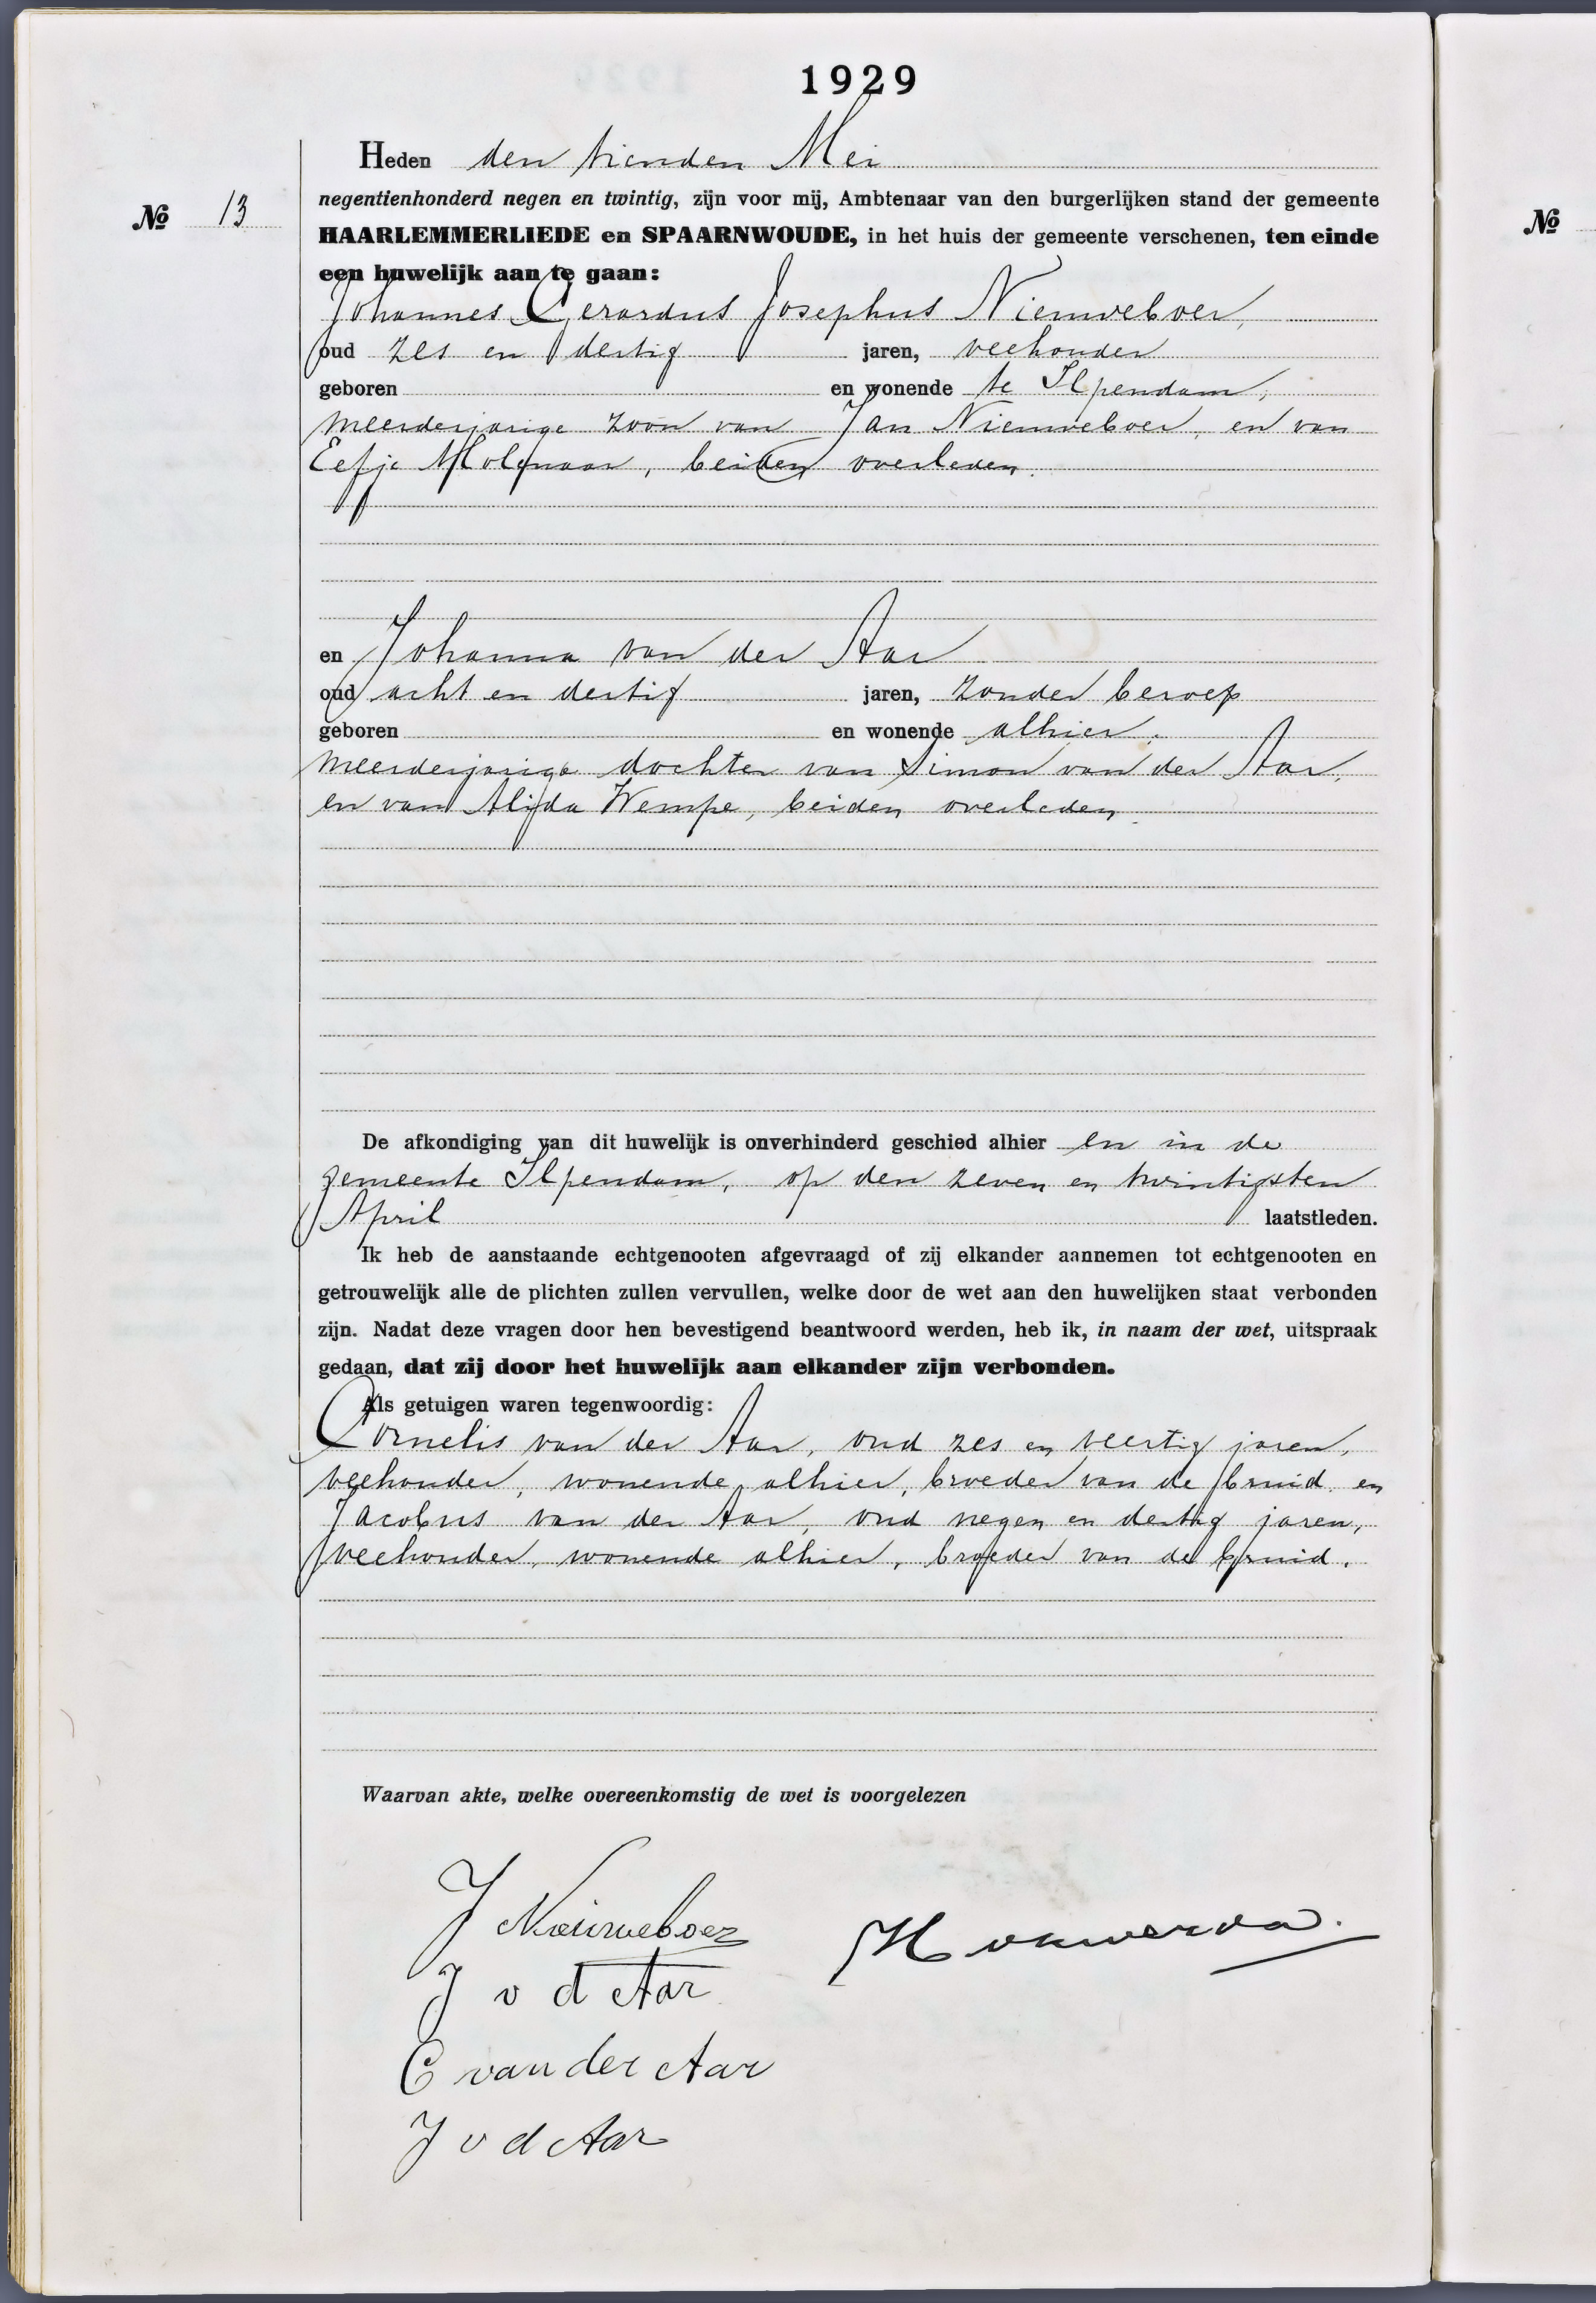 1929
Heden den tienden Mei
negentienhonderd negen en twintig, zijn voor mij, Ambtenaar van den burgerlijken stand der gemeente
№ 13
HAARLEMMERLIEDE en SPAARNWOUDE, in het huis der gemeente verschenen, ten einde
een huwelijk aan te gaan:
Johannes Gerardus Josephus Nieuweboer,
oud zes en dertig jaren, veehouder
geboren en wonende te Ilpendam,
meerderjarige zoon van Jan Nieuweboer, en van
Eefje Molenaar, beiden overleden.
en Johanna van der Aar
oud acht en dertig jaren, zonder beroep
geboren en wonende alhier,
meerderjarige dochter van Simon van der Aar,
en van Alijda Wempe, beiden overleden.
De afkondiging van dit huwelijk is onverhinderd geschied alhier en in de
gemeente Ilpendam, op den zeven en twintigsten
April laatstleden.
Ik heb de aanstaande echtgenooten afgevraagd of zij elkander aannemen tot echtgenooten en
getrouwelijk alle de plichten zullen vervullen, welke door de wet aan den huwelijken staat verbonden
zijn. Nadat deze vragen door hen bevestigend beantwoord werden, heb ik, in naam der wet, uitspraak
gedaan, dat zij door het huwelijk aan elkander zijn verbonden.
Als getuigen waren tegenwoordig:
Cornelis van der Aar, oud zes en veertig jaren,
veehouder, wonende alhier, broeder van de bruid en
Jacobus van der Aar, oud negen en dertig jaren,
veehouder, wonende alhier, broeder van de bruid.
Waarvan akte, welke overeenkomstig de wet is voorgelezen
J Nieuweboer
J v d Aar
C van der Aar
J v d Aar
№